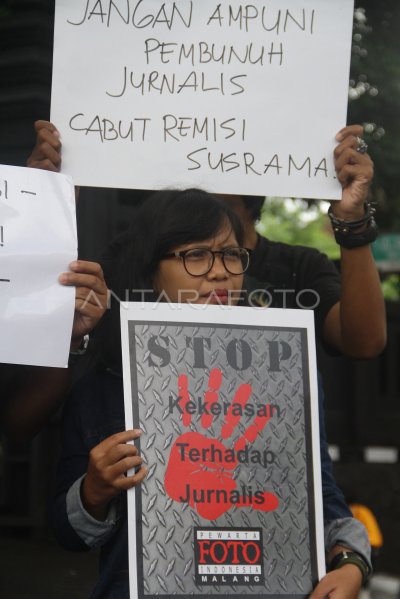 JANGAN AMPUNI
PEMBUNUH
JURNALIS
CABUT REMISI
SUSRAMA.
SI –
!
–
ANTARAFOTO
STOP
Kekerasan
Terhadap
Jurnalis
PEWARTA
FOTO
INDONESIA
MALANG